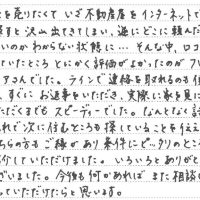 を売りたくて いざ不動産屋をインターネットで
すと 沢山出てきてしまい、逆にどこに頼んだ
いのかわからない状態に… そんな中、口コ
ていたところ とにかく評価がよかったのが フ
アさんでした。ラインで連絡を取れるのも
、すぐに お返事をいただき、実際に家を見に
ただくまでも スピーディーでした。なんとなく
れで次に住むところも探していることを伝え
ちらの方も ご縁があり 条件にピッタリのところ
介していただけました。いろいろとありがと
ざいました。今後も何かあれば また相談
っていただけたらと思います。